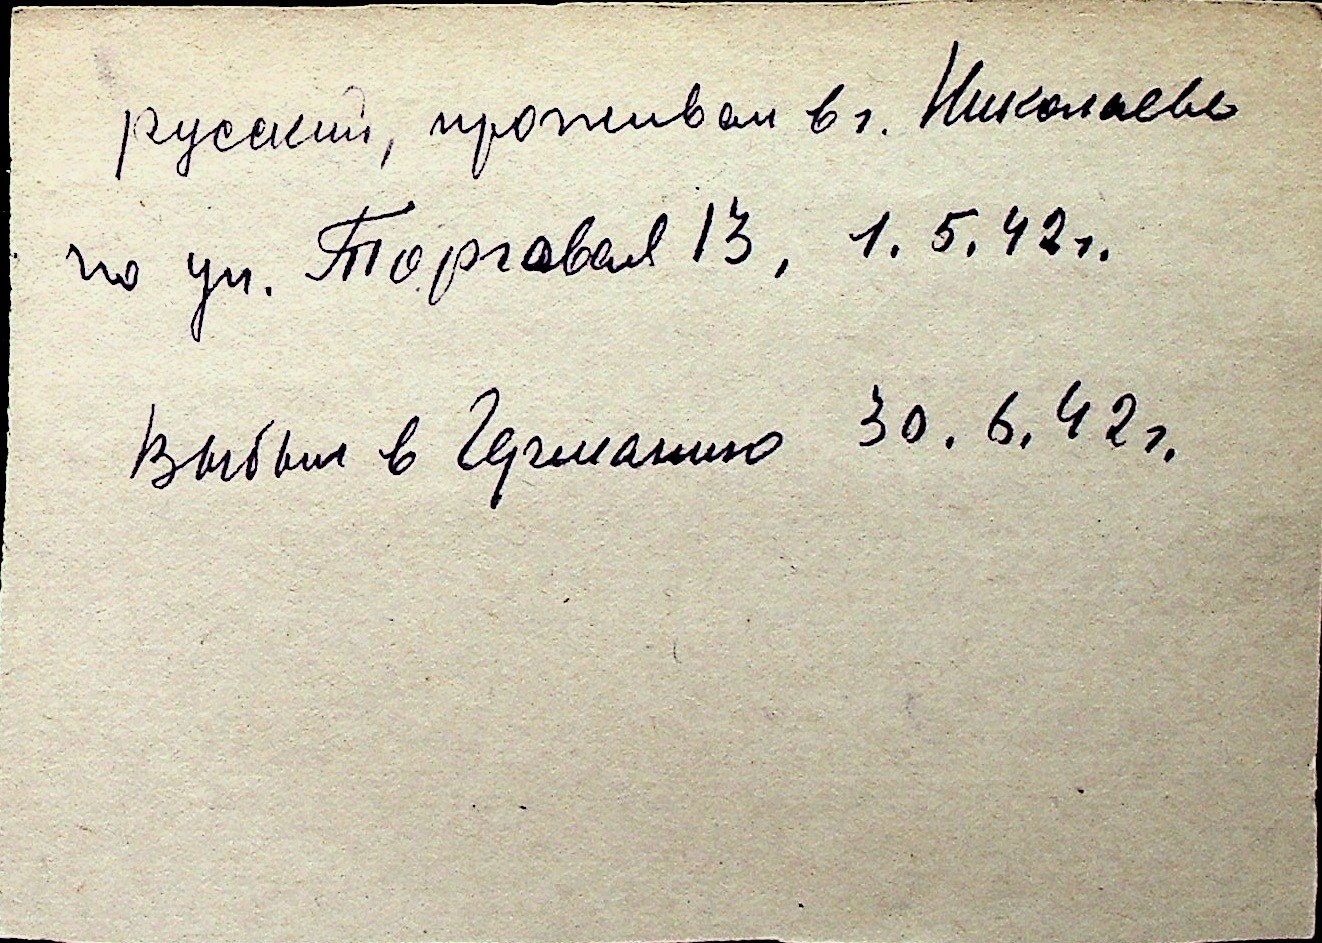 русский, проживал в г. Николаеве
по ул. Торговая 13, 1.5.42г.
Выбыл в Германию 30.6.42г.